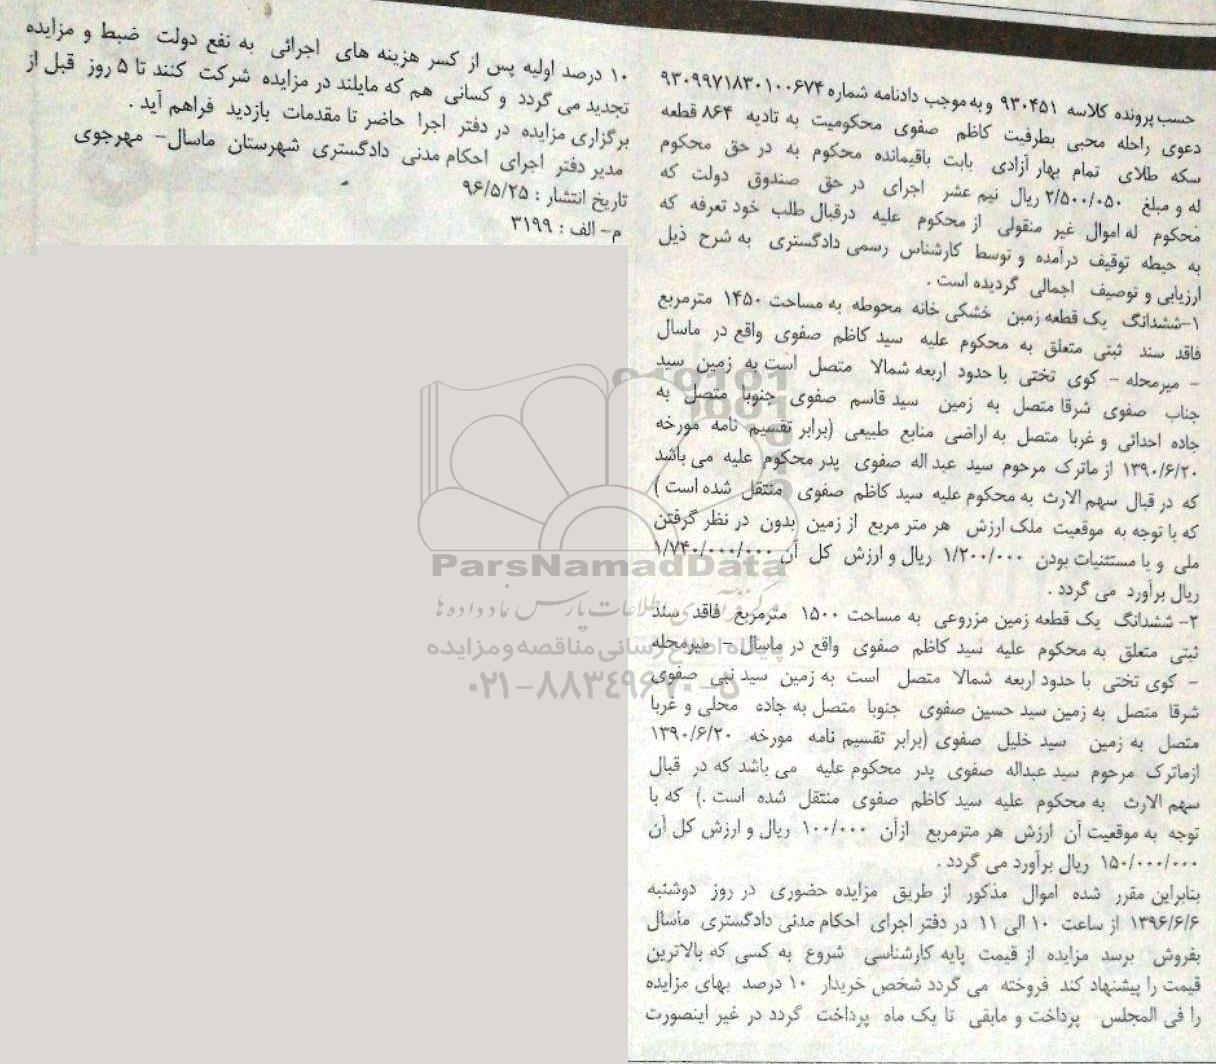 حسب پرونده کلاسه ۹۳۰۴۵۱ و به موجب دادنامه شماره ۹۳۰۹۹۷۱۸۳۰۱۰۰۶۷۴
دعوی راحله محبی بطرفیت کاظم صفوی محکومیت به تادیه ۸۶۴ قطعه
سکه طلای تمام بهار آزادی بابت باقیمانده محکوم به در حق محکوم
له و مبلغ ۲/۵۰۰/۰۵۰ ریال نیم عشر اجرای در حق صندوق دولت که
محکوم له اموال غیر منقولی از محکوم علیه درقبال طلب خود تعرفه که
به حیطه توقیف درآمده و توسط کارشناس رسمی دادگستری به شرح ذیل
ارزیابی و توصیف اجمالی گردیده است .
۱-ششدانگ یک قطعه زمین خشکی خانه محوطه به مساحت ۱۴۵۰ مترمربع
فاقد سند ثبتی متعلق به محکوم علیه سید کاظم صفوی واقع در ماسال
- میرمحله - کوی تختی با حدود اربعه شمالا متصل است به زمین سید
جناب صفوی شرقا متصل به زمین سید قاسم صفوی جنوبا متصل به
جاده احداثی و غربا متصل به اراضی منابع طبیعی (برابر تقسیم نامه مورخه
۱۳۹۰/۶/۲۰ از ماترک مرحوم سید عبد اله صفوی پدر محکوم علیه می باشد
که در قبال سهم الارث به محکوم علیه سید کاظم صفوی منتقل شده است )
که با توجه به موقعیت ملک ارزش هر متر مربع از زمین بدون در نظر گرفتن
ملی و یا مستثنیات بودن ۱/۲۰۰/۰۰۰ ریال و ارزش کل آن ۱/۷۴۰/۰۰۰/۰۰۰
ریال برآورد می گردد .
۲- ششدانگ یک قطعه زمین مزروعی به مساحت ۱۵۰۰ مترمربع فاقد سند
ثبتی متعلق به محکوم علیه سید کاظم صفوی واقع در ماسال - میرمحله
- کوی تختی با حدود اربعه شمالا متصل است به زمین سید نبی صفوی
شرقا متصل به زمین سید حسین صفوی جنوبا متصل به جاده محلی و غربا
متصل به زمین سید خلیل صفوی (برابر تقسیم نامه مورخه ۱۳۹۰/۶/۲۰
ازماترک مرحوم سید عبداله صفوی پدر محکوم علیه می باشد که در قبال
سهم الارث به محکوم علیه سید کاظم صفوی منتقل شده است .) که با
توجه به موقعیت آن ارزش هر مترمربع ازآن ۱۰۰/۰۰۰ ریال و ارزش کل آن
۱۵۰/۰۰۰/۰۰۰ ریال برآورد می گردد .
بنابراین مقرر شده اموال مذکور از طریق مزایده حضوری در روز دوشنبه
۱۳۹۶/۶/۶ از ساعت ۱۰ الی ۱۱ در دفتر اجرای احکام مدنی دادگستری ماسال
بفروش برسد مزایده از قیمت پایه کارشناسی شروع به کسی که بالاترین
قیمت را پیشنهاد کند فروخته می گردد شخص خریدار ۱۰ درصد بهای مزایده
را فی المجلس پرداخت و مابقی تا یک ماه پرداخت گردد در غیر اینصورت
۱۰ درصد اولیه پس از کسر هزینه های اجرائی به نفع دولت ضبط و مزایده
تجدید می گردد و کسانی هم که مایلند در مزایده شرکت کنند تا ۵ روز قبل از
برگزاری مزایده در دفتر اجرا حاضر تا مقدمات بازدید فراهم آید .
مدیر دفتر اجرای احکام مدنی دادگستری شهرستان ماسال- مهرجوی
تاریخ انتشار : ۹۶/۵/۲۵
م- الف : ۳۱۹۹
ParsNamadData
مرکز فرآوری اطلاعات پارس نماد داده ها
پایگاه اطلاع رسانی مناقصه و مزایده
۰۲۱-۸۸۳۴۹۶۷۰-۵